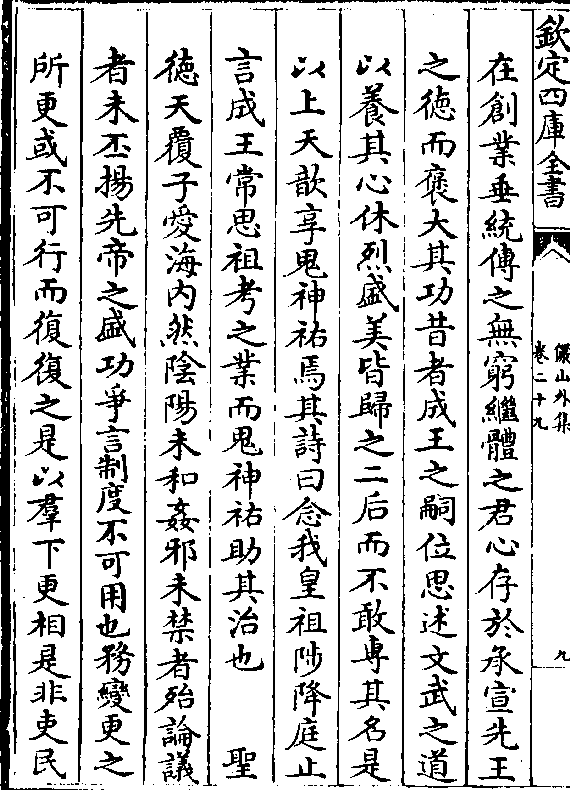 欽定四庫全書
儼山外集
卷二十九
九
在創業垂統傳之無窮繼體之君心存於承宣先王
之徳而褒大其功昔者成王之嗣位思述文武之道
以養其心休烈盛美皆歸之二后而不敢専其名是
以上天歆享鬼神祐焉其詩曰念我皇祖陟降庭止
言成王常思祖考之業而鬼神祐助其治也　聖
徳天覆子愛海内然陰陽未和姦邪未禁者殆論議
者未丕揚先帝之盛功爭言制度不可用也務變更之
所更或不可行而復復之是以羣下更相是非吏民